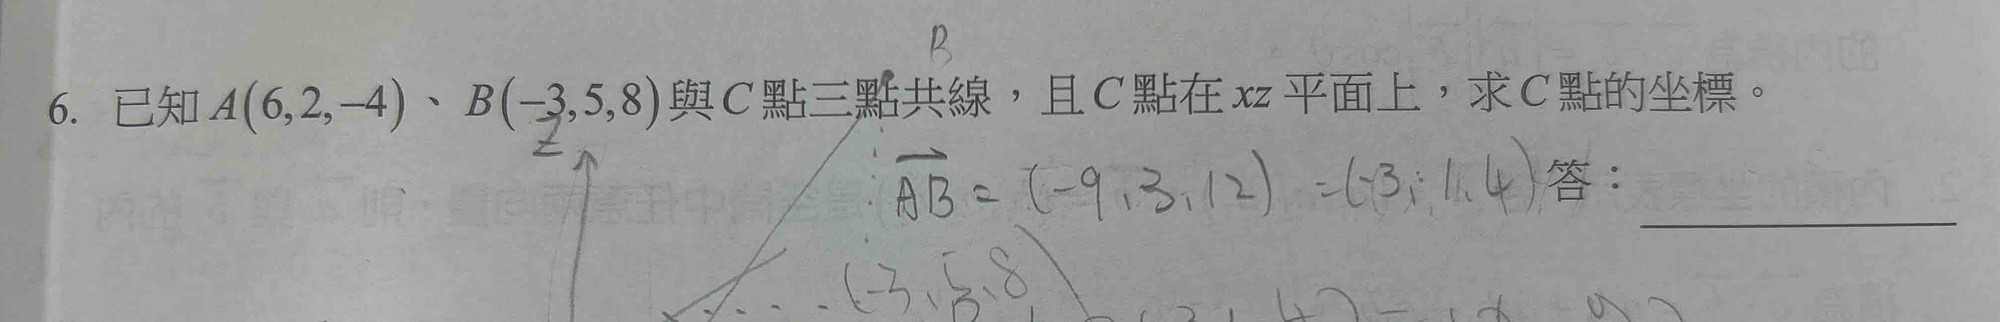 B
6. 已知 A(6,2,−4)、B(−3,5,8)與 C 點三點共線，且 C 點在 xz 平面上，求 C 點的坐標。
Z
AB = (-9,3,12) = (-3,1,4) 答：
(-3,5,8)